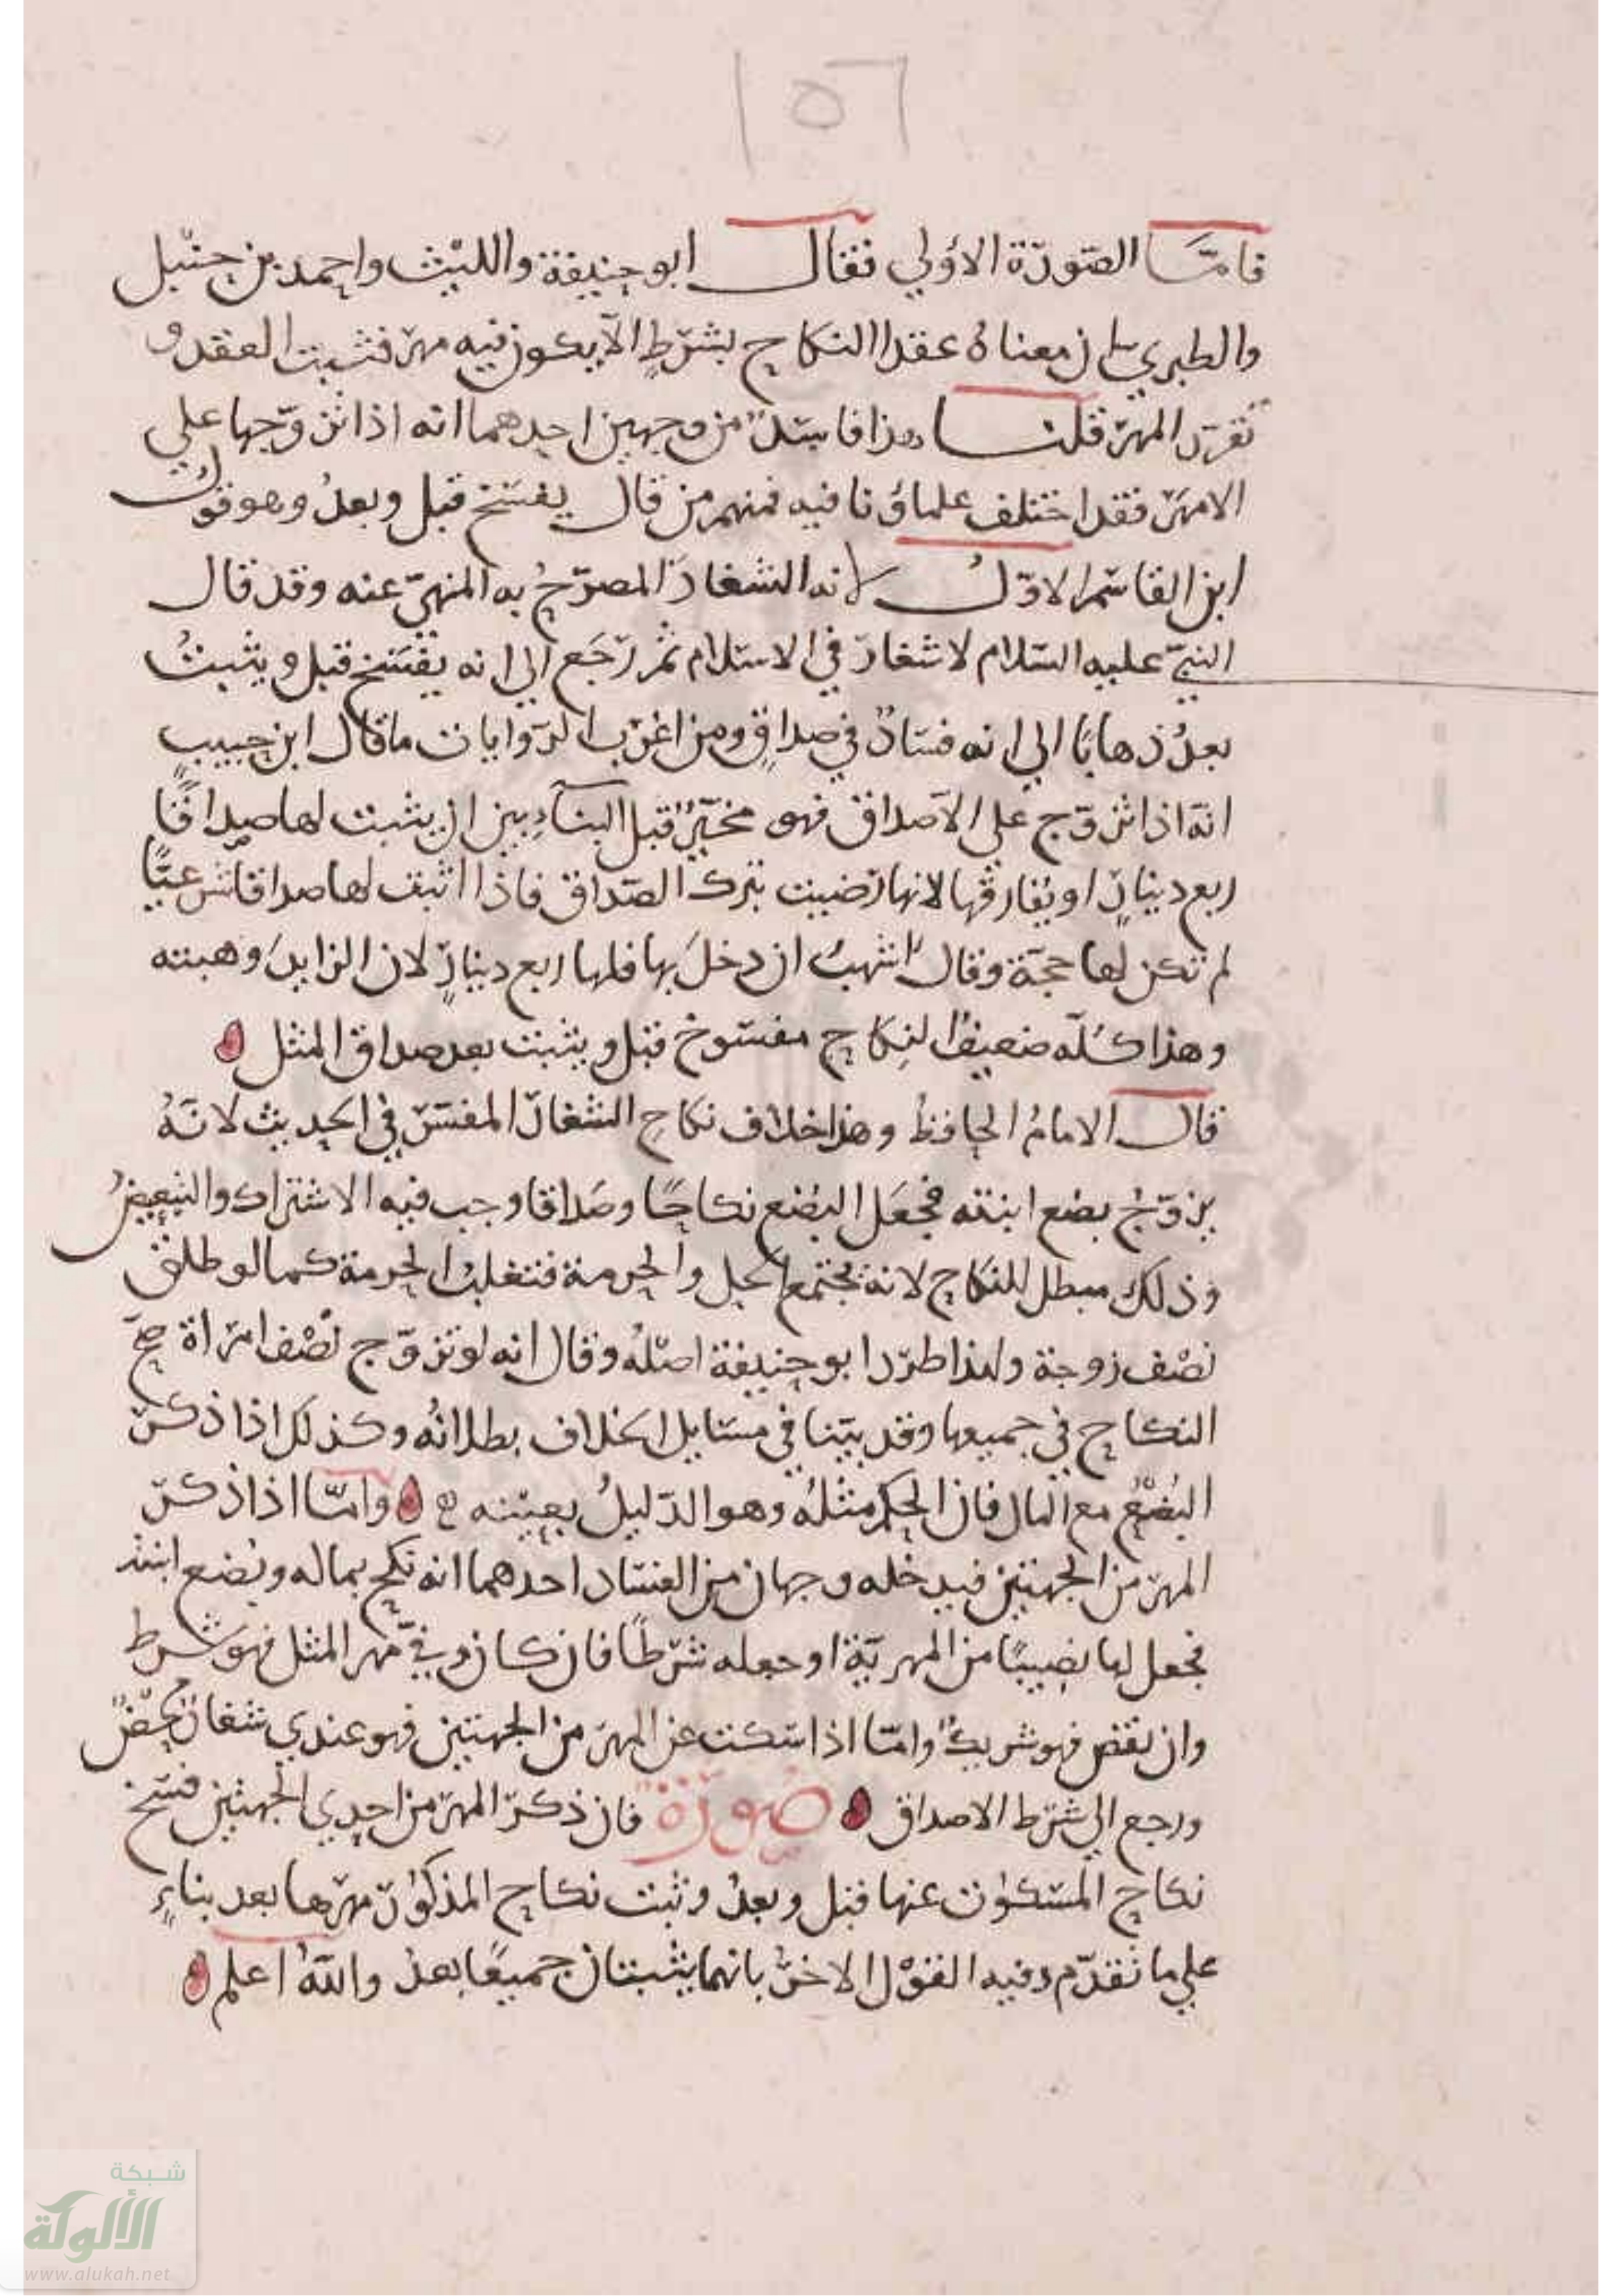 ١٥٦
فامَّا الصّورَة الاوُلي فقال ابو حنيفة والليْث واحمد بن حنْبل
والطبري بان معناهُ عقدا النكاح بشرْطٍ الآ يكون فيه مهرٌ فثبت العقد و
تقررَ المهرُ قلنا هذا فاسدٌ من وجهين احدهما انه اذا تزوّجها علي
الامهرَ فقد اختلف علماؤنا فيه فمنهم من قال يفسَخ قبل وبعدُ وهو قولُ
ابن القاسم الاوّلُ لانه الشغارُ المصرّحُ به المنهيّ عنه وقد قال
النبيّ عليه السّلام لا شغارَ في الاسلام ثم رَجَع الي انه يفسَخ قبل ويثبتُ
بعدُ ذهابًا الي انه فسَادٌ في صداقٍ ومن اغرَب الروايات ما قال ابن حبيب
انّه اذا تزوّج علي الآصداق فهو مخيَّرٌ قبل البنآءِ بين ان يثبت لها صداقًا
ربع دينارٍ او يُفارقها لانها رَضيت بترك الصّداق فاذا اثبت لها صداقا شرْعيًّا
لم تكن لها حجّة وقال اشهبُ ان دخلَ بها فلها ربع دينارٍ لان الزايدَ وهبته
وهذا كلّه ضعيفٌ النِكاح مفسوخ قبل ويثبت بعد صداق المثل
قال الامامُ الحافظُ وهذا خلاف نكاحِ الشغارِ المفسَّرِ في الحديث لانّهُ
يزوّجُ بضع ابنته فجعَل البُضع نكاحًا وصَداقا وجب فيه الاشتراك والتبعيضُ
وذلك مبطل للنكاح لانه يجتمع الحِل والحرمة فتغلبُ الحرمة كما لو طلق
نصْف زوجة ولهذا طرّد ابو حنيفة اصْلهُ وقال انه لو تزوّج نصْف امراة صحّ
النكاح في جميعها وقد بيّنا في مسَايل الخلاف بطلانُه وكذلك اذا ذكر
البُضْعُ مع المال فان الحكم مثلُهُ وهو الدّليلُ بعيْنه وامّا اذا ذكر
المهرَ من الجهتين فيدخله وجهان من الفسَاد احدهما انه نكح بماله وبُضع ابنته
فجعل لها نصيبًا من المهريّة او جعله شرْطًا فان كان وفيّ مهر المثل فهو شرط
وان نقص فهو شريكٌ وامّا اذا سَكت عن المهر من الجهتين فهو عندي شغارٌ محْضٌ
ورجع الي شرْط الاصداق صُورَة فان ذكرَ المهرَ من احدي الجهتين فسَخ
نكاح المسكوت عنها قبل وبعدُ وثبت نكاح المذكور مهرُها بعد بناءٍ
علي ما تقدّم وفيه القوْل الاخرُ بانهما يثبتان جميعًا بعدُ واللهُ اعلم
شبكة
الألوكة
www.alukah.net